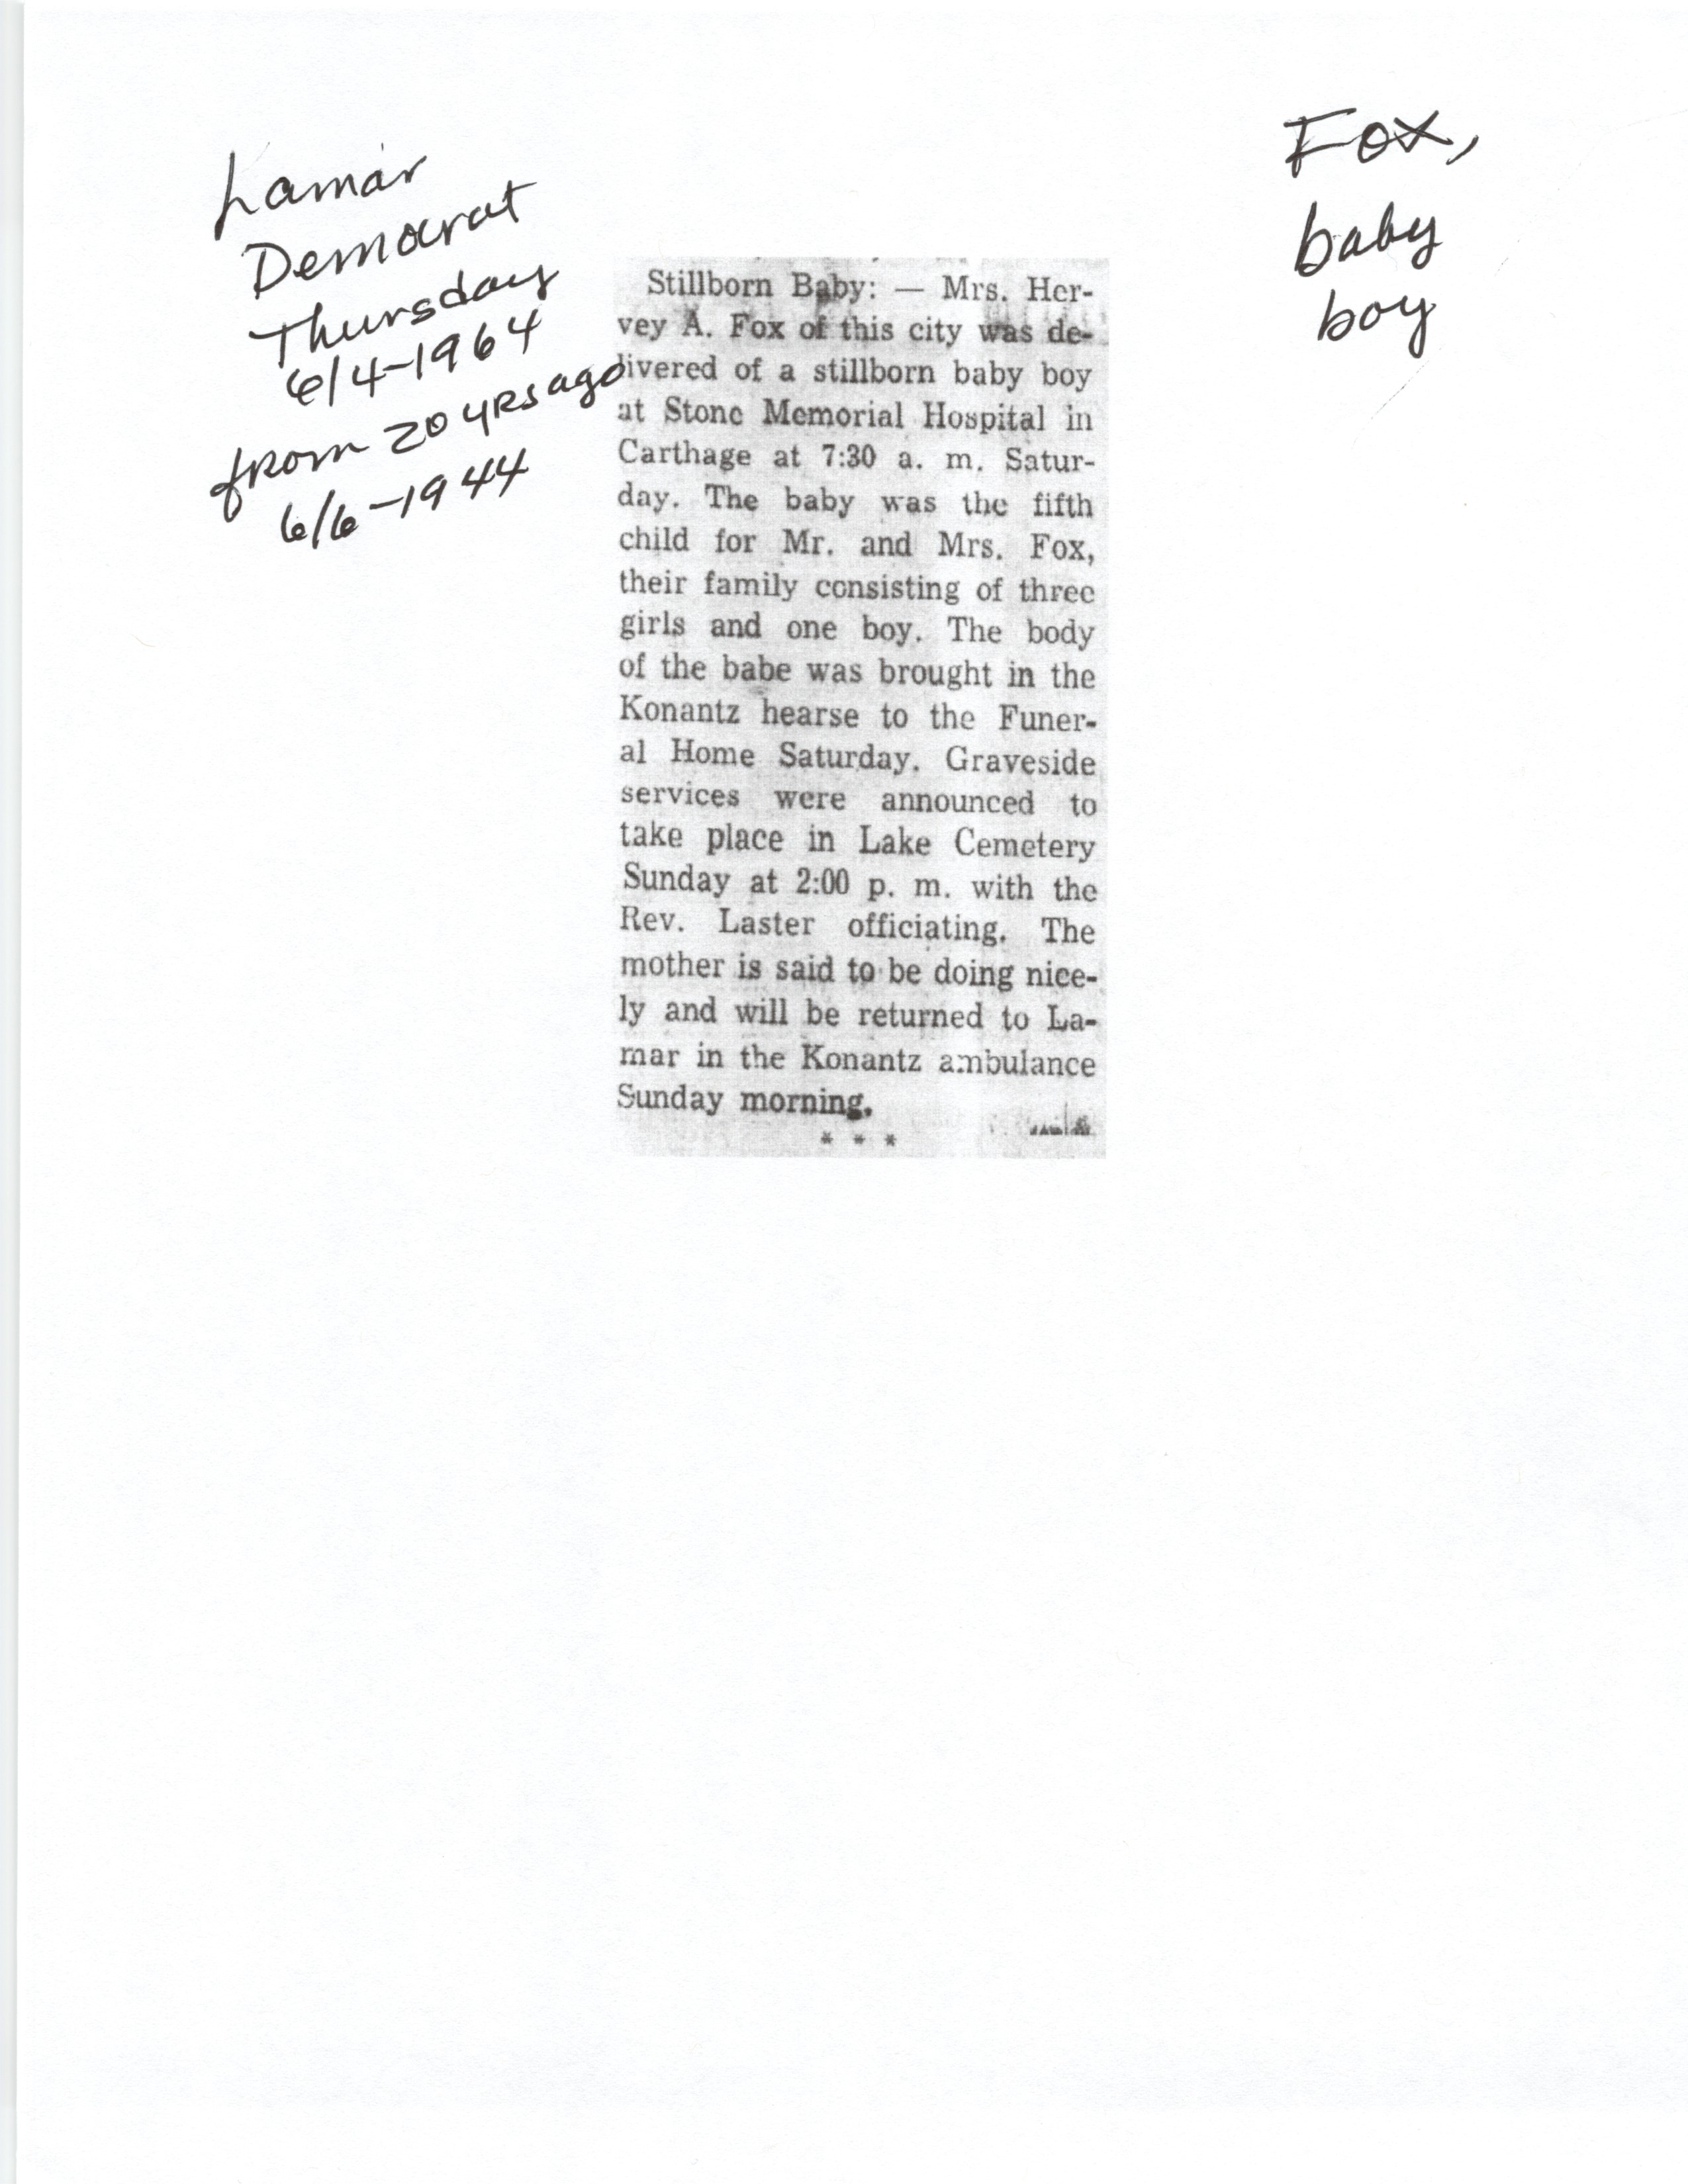 Lamar
Democrat
Thursday
6/4-1964
from 20 yrs ago
6/6-1944
Fox,
baby
boy
Stillborn Baby: — Mrs. Her-
vey A. Fox of this city was de-
livered of a stillborn baby boy
at Stone Memorial Hospital in
Carthage at 7:30 a. m. Satur-
day. The baby was the fifth
child for Mr. and Mrs. Fox,
their family consisting of three
girls and one boy. The body
of the babe was brought in the
Konantz hearse to the Funer-
al Home Saturday. Graveside
services were announced to
take place in Lake Cemetery
Sunday at 2:00 p. m. with the
Rev. Laster officiating. The
mother is said to be doing nice-
ly and will be returned to La-
mar in the Konantz ambulance
Sunday morning.
* * *